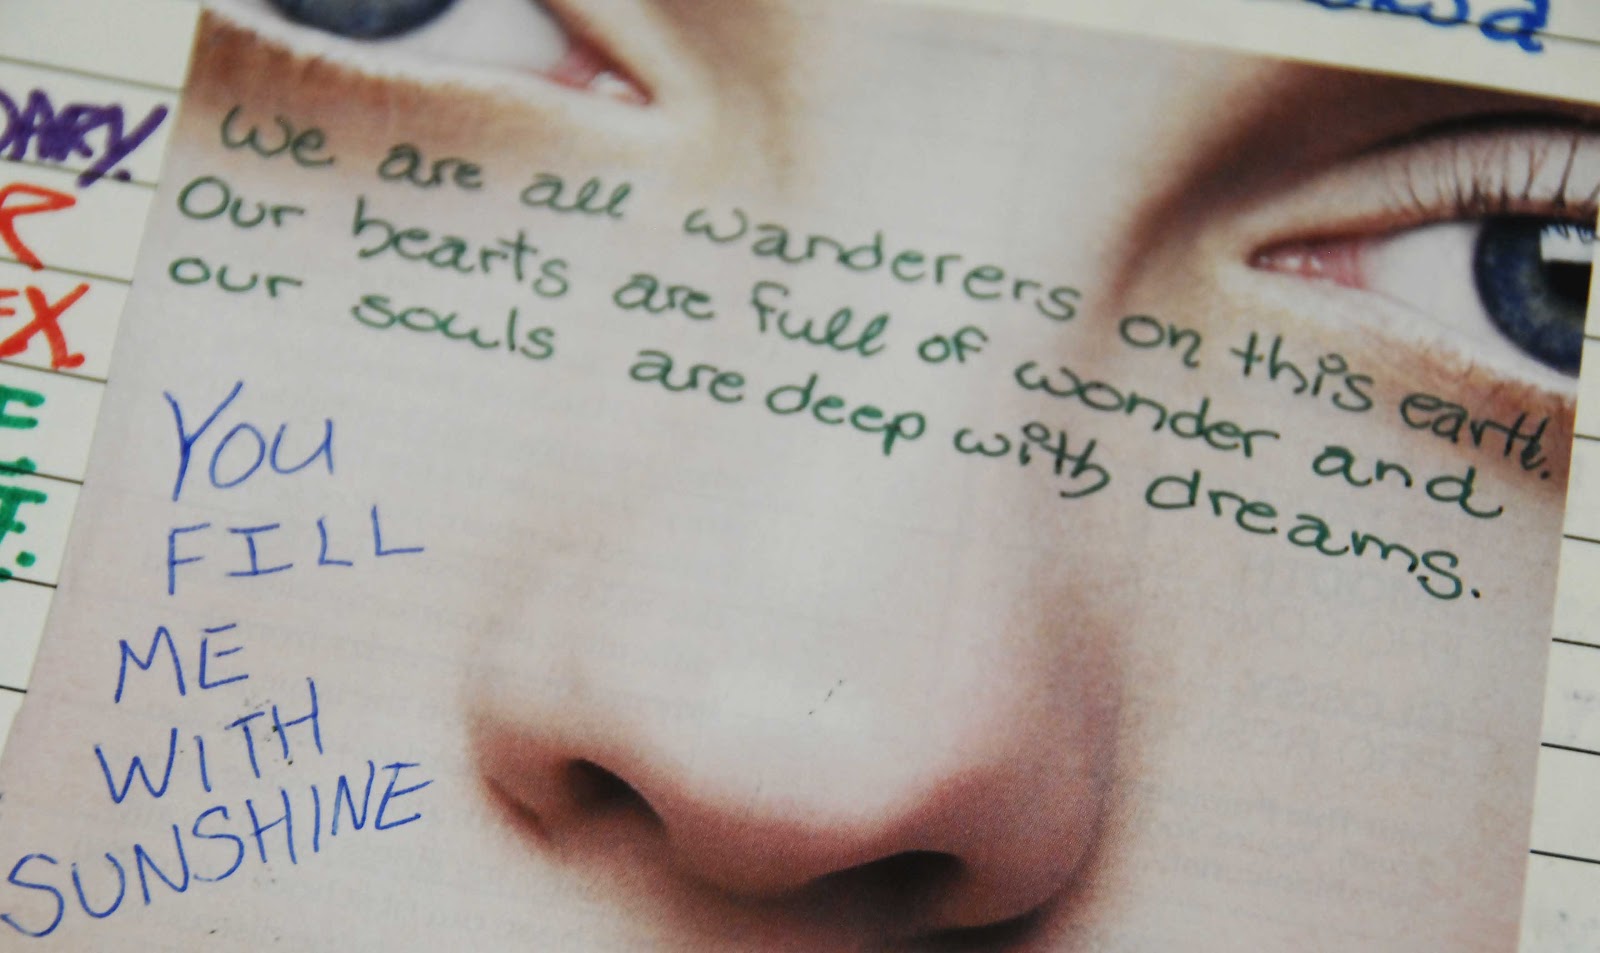 We are all wanderers on this earth.
Our hearts are full of wonder and
our souls are deep with dreams.
YOU
FILL
ME
WITH
SUNSHINE